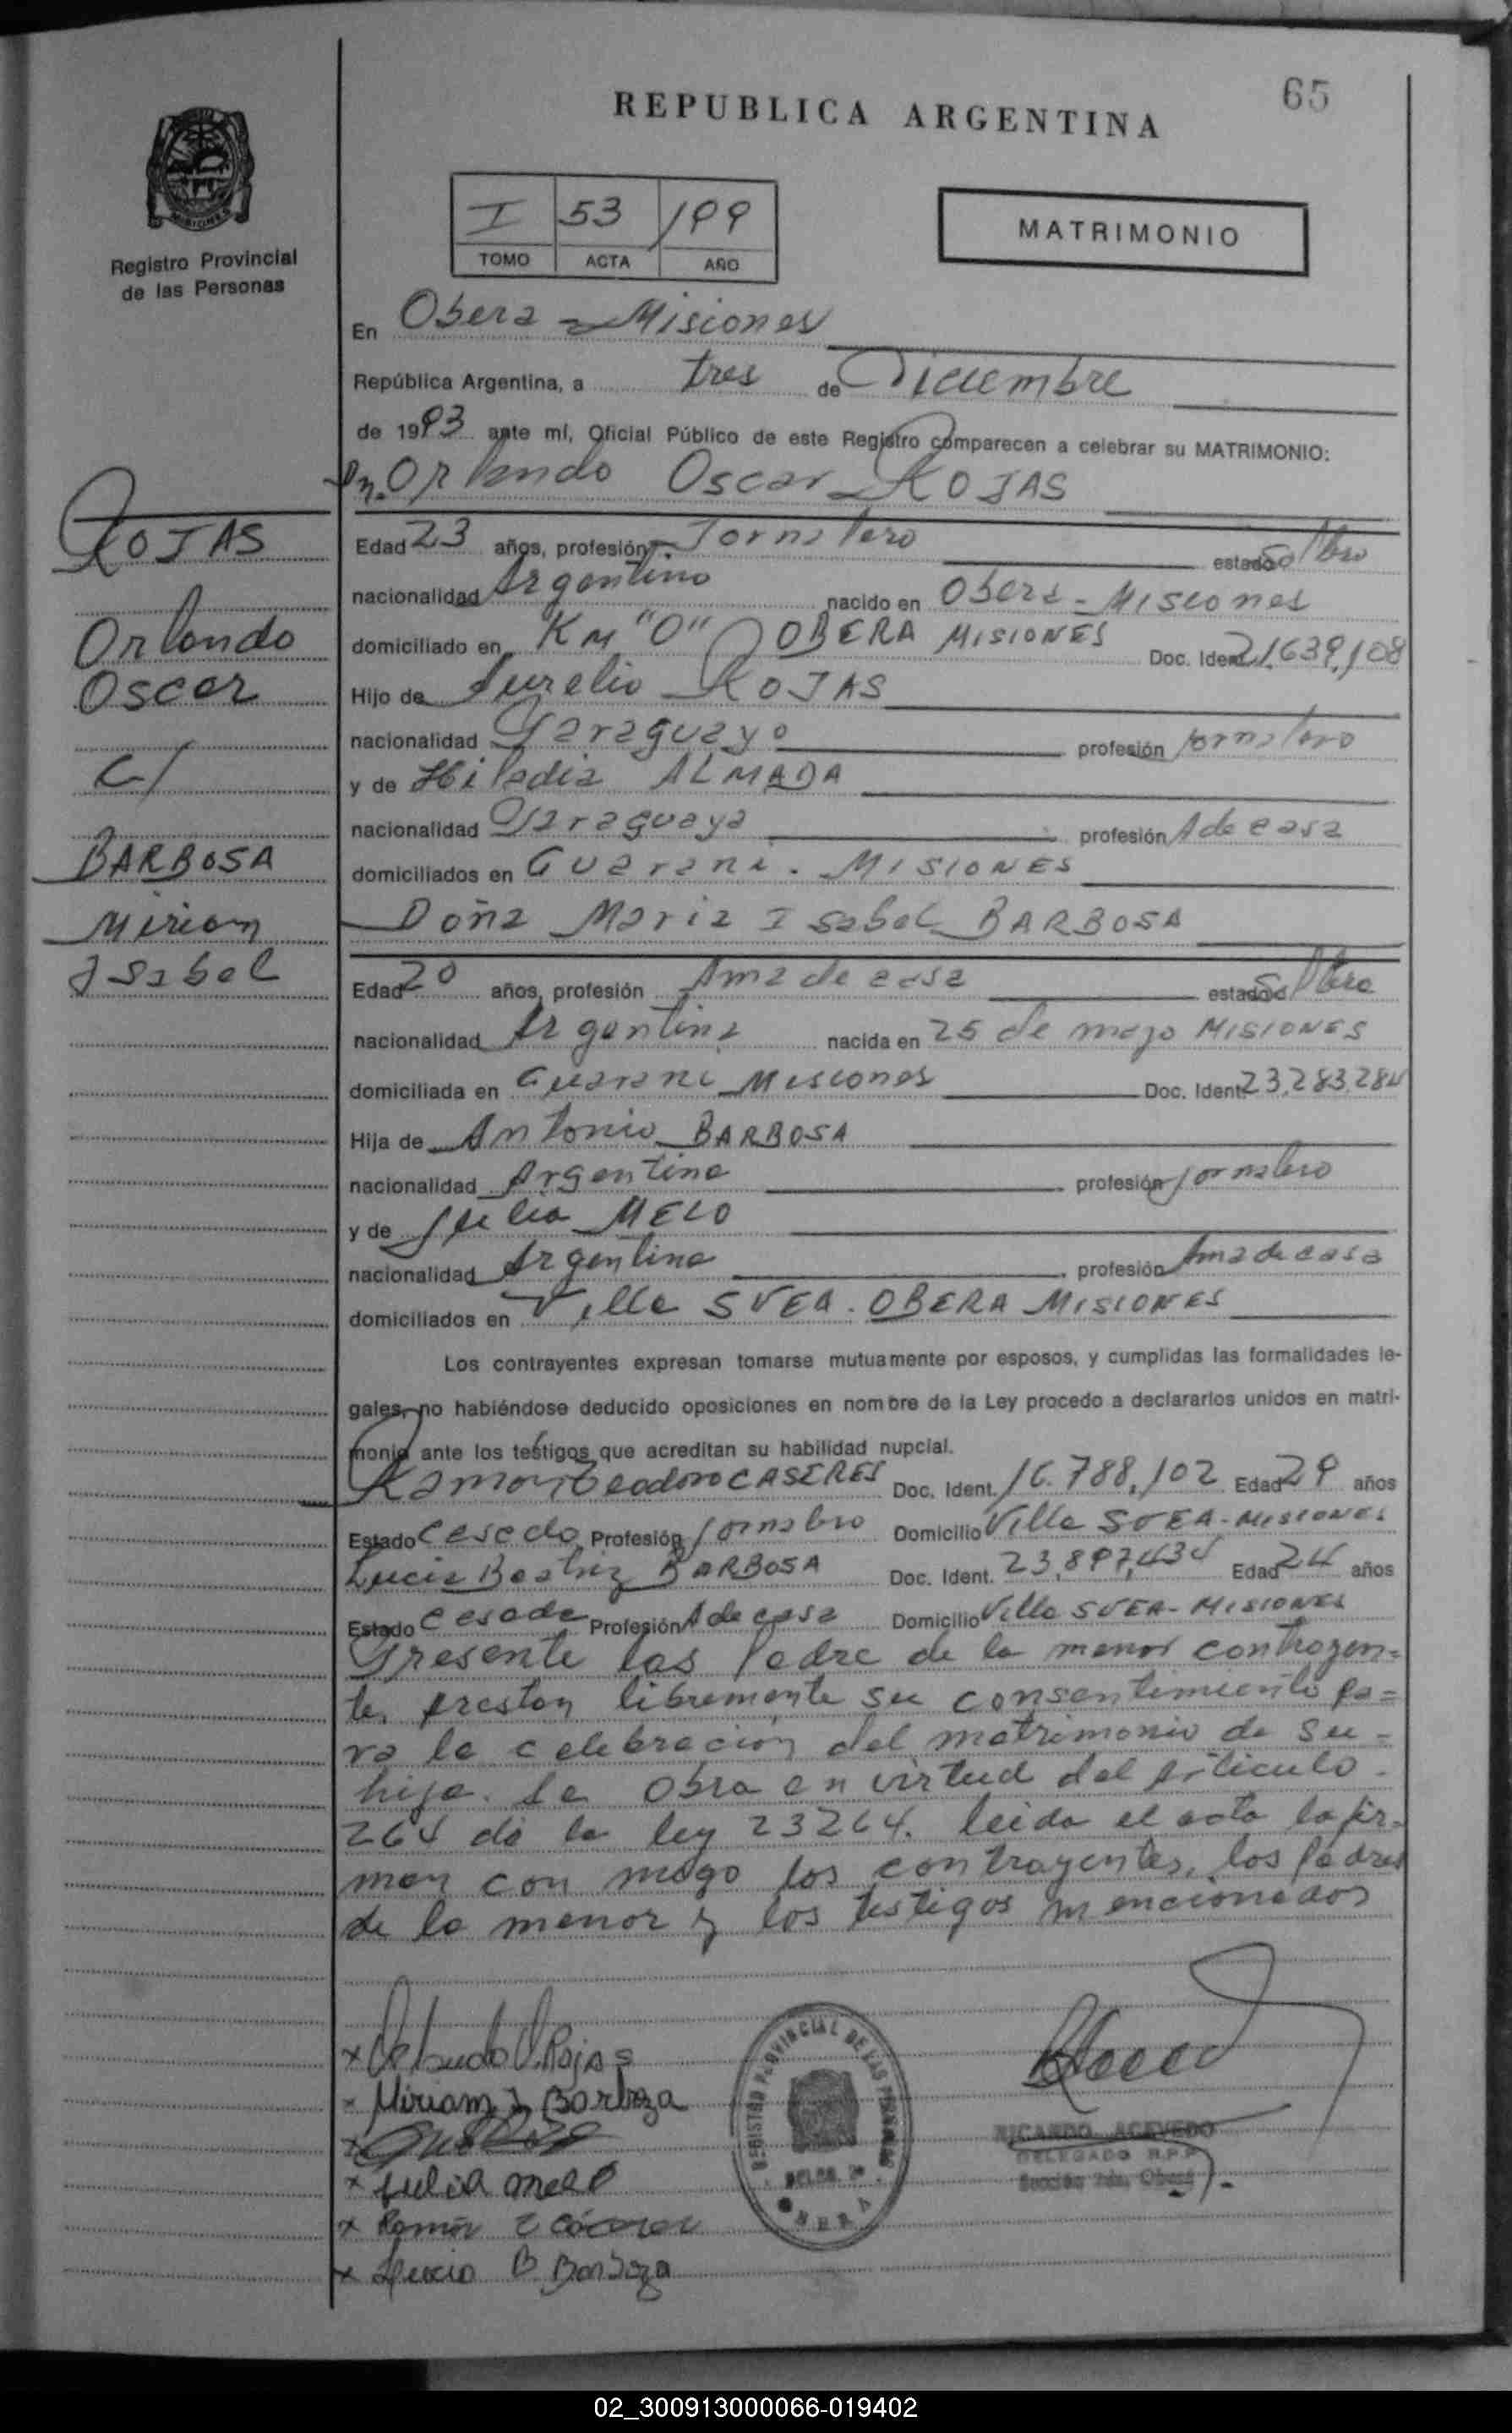 65
REPUBLICA ARGENTINA
MISIONES
Registro Provincial
de las Personas
I 53 199
TOMO ACTA AÑO
MATRIMONIO
En Obera - Misiones
República Argentina, a tres de Diciembre
de 1993 ante mí, Oficial Público de este Registro comparecen a celebrar su MATRIMONIO:
Dn. Orlando Oscar ROJAS
ROJAS
Orlando
Oscar
c/
BARBOSA
Miriam
Isabel
Edad 23 años, profesión Jornalero estado Soltero
nacionalidad Argentino nacido en Obera - Misiones
domiciliado en Km "0" OBERA MISIONES Doc. Ident. 21.639.108
Hijo de Aurelio ROJAS
nacionalidad Paraguayo profesión jornalero
y de Hiladia ALMADA
nacionalidad Paraguaya profesión A de casa
domiciliados en Guarani - MISIONES
Doña Maria Isabel BARBOSA
Edad 20 años, profesión Ama de casa estado Soltera
nacionalidad Argentina nacida en 25 de mayo MISIONES
domiciliada en Guarani Misiones Doc. Ident. 23.283.284
Hija de Antonio BARBOSA
nacionalidad Argentino profesión jornalero
y de Julia MELO
nacionalidad Argentina profesión Ama de casa
domiciliados en Villa SVEA - OBERA MISIONES
Los contrayentes expresan tomarse mutuamente por esposos, y cumplidas las formalidades le-
gales, no habiéndose deducido oposiciones en nombre de la Ley procedo a declararlos unidos en matri-
monio ante los testigos que acreditan su habilidad nupcial.
Ramon Teodoro CASERES Doc. Ident. 16.788.102 Edad 29 años
Estado Casado Profesión jornalero Domicilio Villa SVEA - Misiones
Lucia Beatriz BARBOSA Doc. Ident. 23.897.434 Edad 24 años
Estado Casada Profesión A de casa Domicilio Villa SVEA - MISIONES
Presente los Padre de la menor contrayen=
te, prestan libremente su consentimiento pa=
ra la celebración del matrimonio de su =
hija. Se obra en virtud del articulo -
264 de la ley 23264. leida el acta la fir-
man con migo los contrayentes, los Padres
de la menor y los testigos mencionados
x Orlando O. Rojas
x Miriam I Barboza
x Julia melo
x Ramón T Cáceres
x Lucia B Barboza
REGISTRO PROVINCIAL DE LAS PERSONAS
OBERA
RICARDO ACEVEDO
DELEGADO R.P.P.
Sección 2da. Oberá
02_300913000066-019402